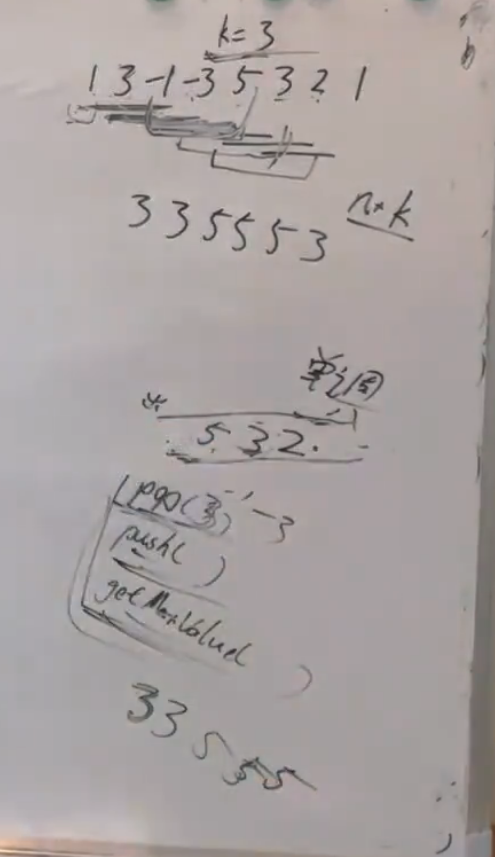 k=3
1 3 -1 -3 5 3 2 1
3 3 5 5 5 3
n*k
单调
5 3 2.
pop(3) -1 -3
push( )
getMaxValue( )
3 3 5 5 5